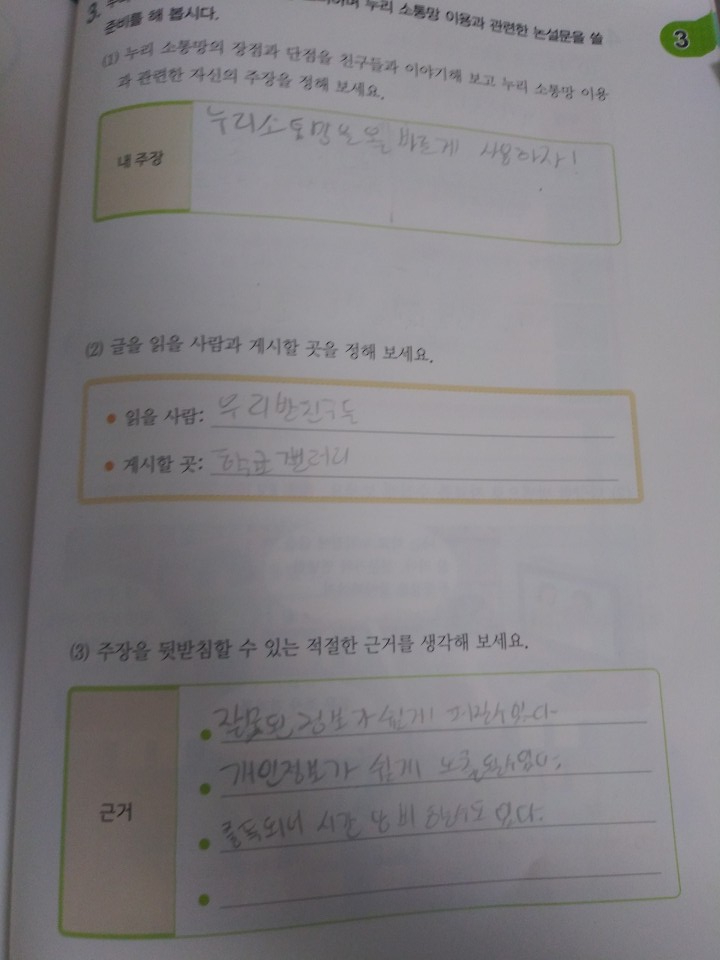 누리 소통망 이용과 관련한 논설문을 쓸
준비를 해 봅시다.
3
(1) 누리 소통망의 장점과 단점을 친구들과 이야기해 보고 누리 소통망 이용
과 관련한 자신의 주장을 정해 보세요.
내 주장
누리소통망을 올바르게 사용하자!
(2) 글을 읽을 사람과 게시할 곳을 정해 보세요.
읽을 사람: 우리반친구들
게시할 곳: 학교 갤러리
(3) 주장을 뒷받침할 수 있는 적절한 근거를 생각해 보세요.
근거
잘못된 정보가 쉽게 퍼질수있다.
개인정보가 쉽게 노출될수있다.
중독되어 시간 낭비 할수도 있다.